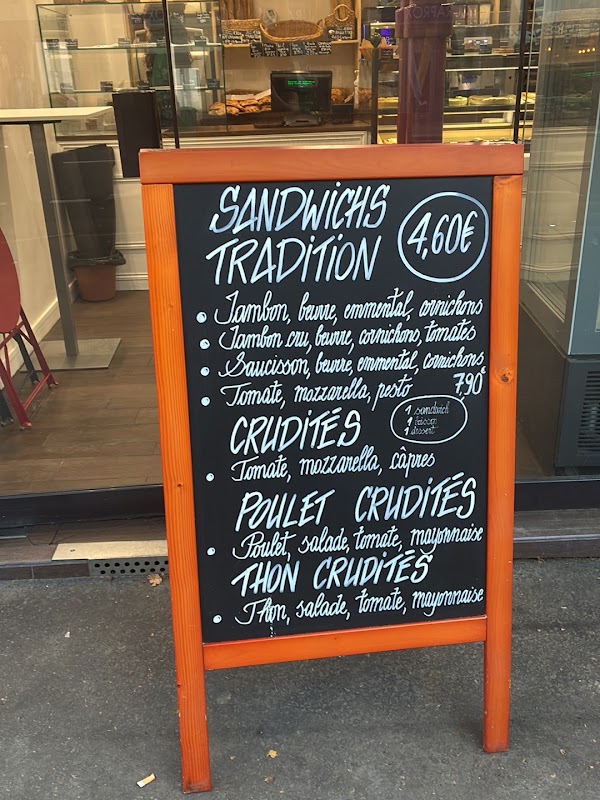 SANDWICHS
TRADITION
4,60€
Jambon, beurre, emmental, cornichons
Jambon cru, beurre, cornichons, tomates
Saucisson, beurre, emmental, cornichons
Tomate, mozzarella, pesto
7,90€
1 sandwich
1 boisson
1 dessert
CRUDITÉS
Tomate, mozzarella, câpres
POULET CRUDITÉS
Poulet, salade, tomate, mayonnaise
THON CRUDITÉS
Thon, salade, tomate, mayonnaise